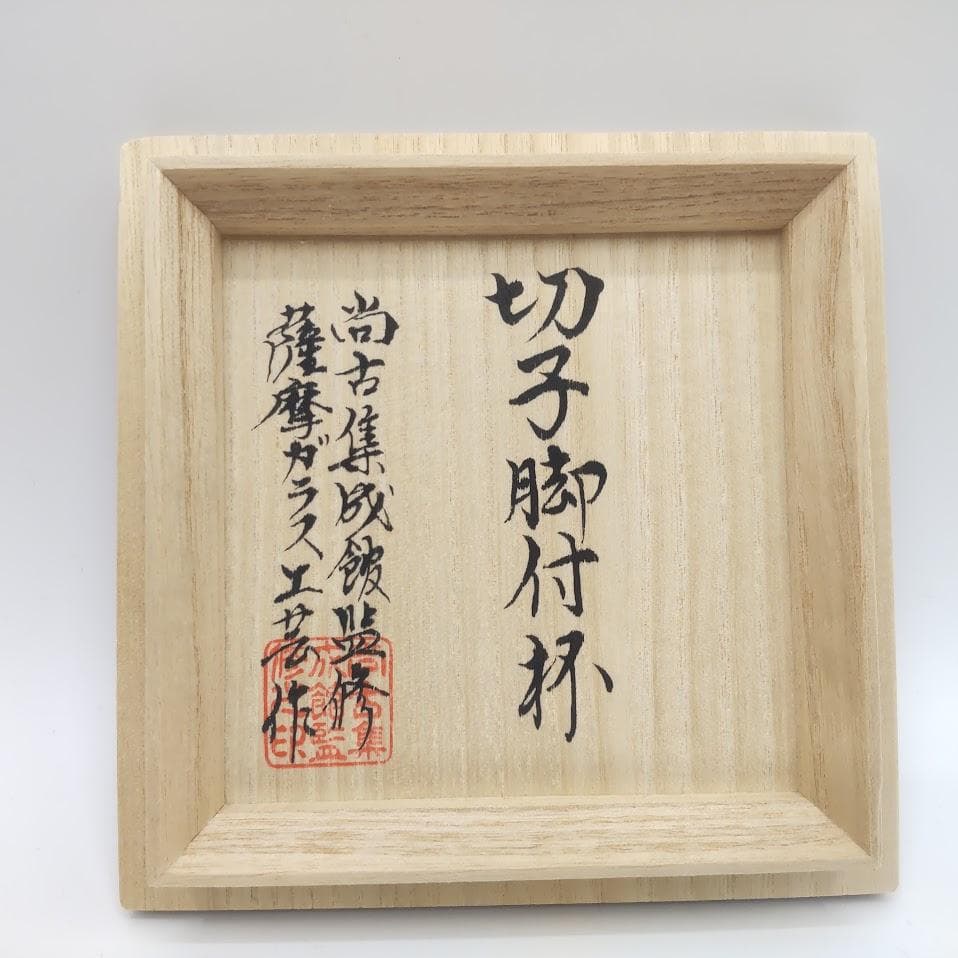 切子脚付杯
尚古集成館監修
薩摩ガラス工芸作
尚古集
成館監
修之印